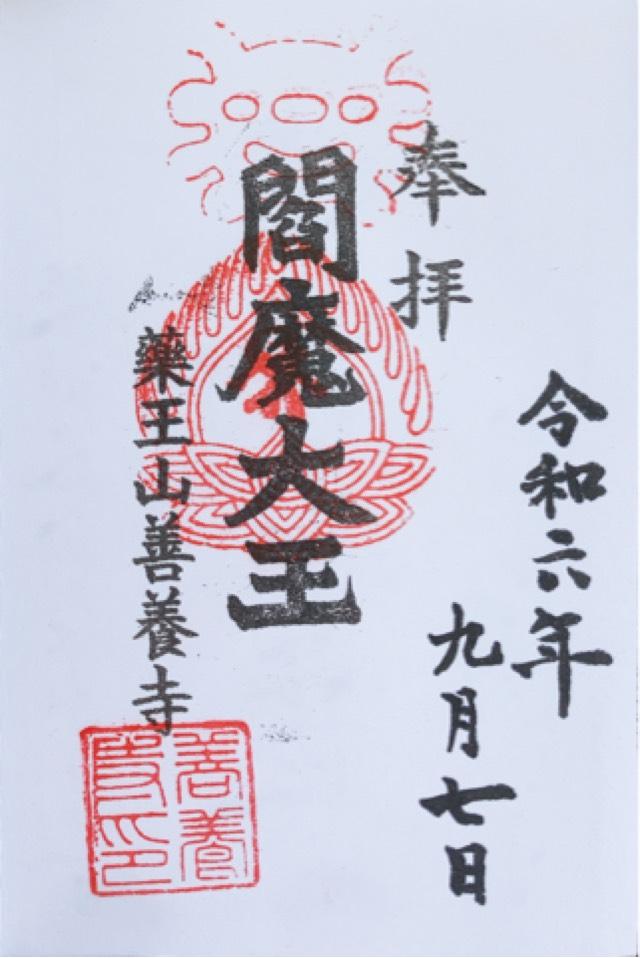 奉拝
令和六年
九月七日
閻魔大王
藥王山善養寺
善養
寺印